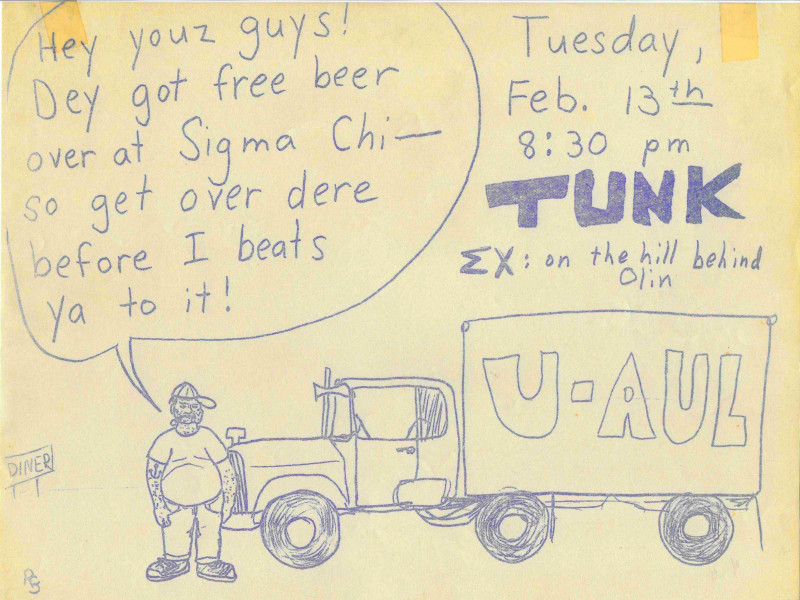 Hey youz guys!
Dey got free beer
over at Sigma Chi—
so get over dere
before I beats
ya to it!
Tuesday,
Feb. 13th
8:30 pm
TUNK
ΣX: on the hill behind
Olin
U-AUL
DINER